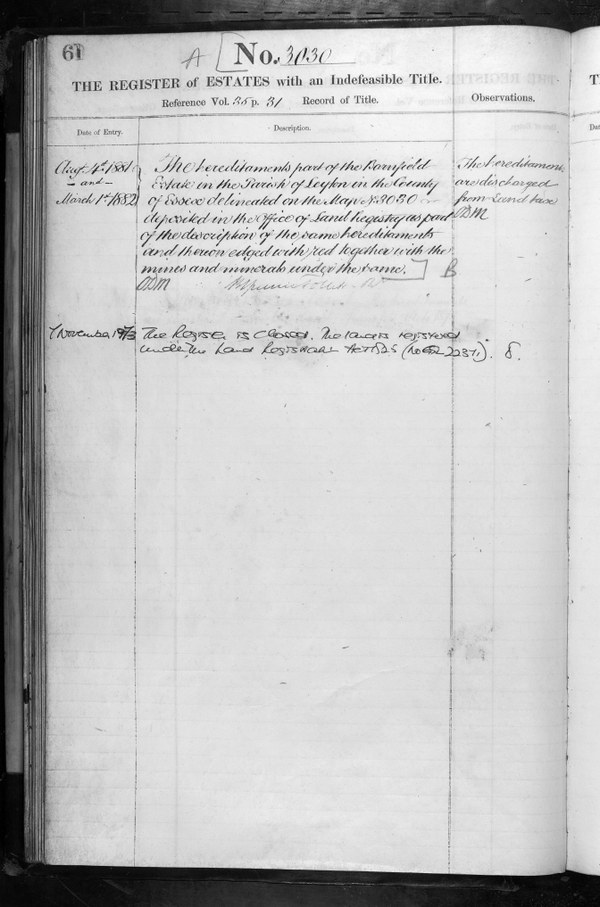 61
A No. 3030
THE REGISTER of ESTATES with an Indefeasible Title.
Reference Vol. 35 p. 31 Record of Title.
Observations.
Date of Entry.
Description.
Augt 4th 1881
- and -
March 1st 1882
The hereditaments part of the Barnfield
Estate in the Parish of Leyton in the County
of Essex delineated on the Map No. 3030
deposited in the Office of Land Registry as part
of the description of the same hereditaments
and thereon edged with red together with the
mines and minerals under the same. B
ODM
The hereditaments
are discharged
from Land tax
ODM
7 November 1973
The Register is closed. The land is registered
under the Land Registration Act 1925